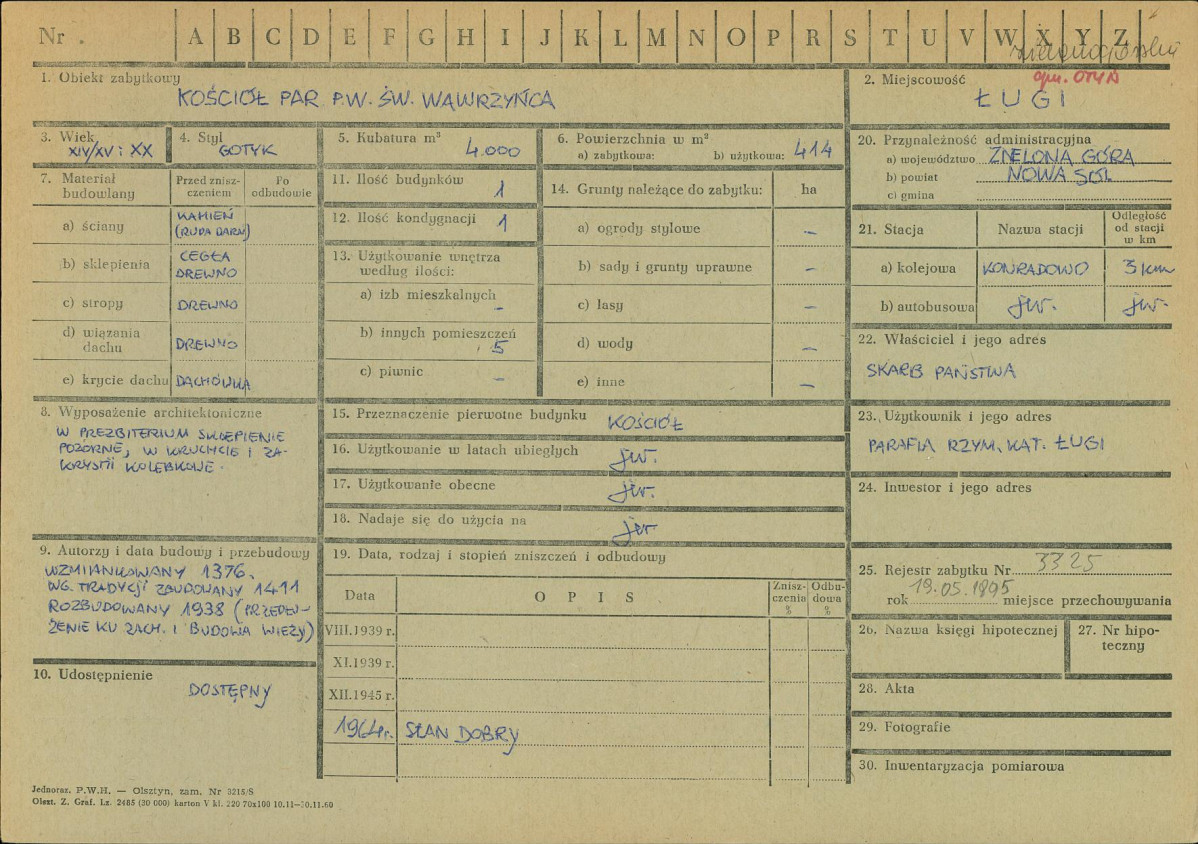 Nr . A B C D E F G H I J K L M N O P R S T U V W X Y Z
1. Obiekt zabytkowy
KOŚCIÓŁ PAR P.W. ŚW. WAWRZYŃCA
2. Miejscowość
gm. OTYŃ
ŁUGI
3. Wiek
XIV/XV i XX
4. Styl
GOTYK
5. Kubatura m³
4.000
6. Powierzchnia w m²
a) zabytkowa: b) użytkowa: 414
7. Materiał budowlany
Przed znisz-
czeniem
Po
odbudowie
a) ściany KAMIEŃ
(RUDA DARN)
b) sklepienia CEGŁA
DREWNO
c) stropy DREWNO
d) wiązania
dachu DREWNO
e) krycie dachu DACHÓWKA
8. Wyposażenie architektoniczne
W PREZBITERIUM SKLEPIENIE
POZORNE, W KRUCHCIE I ZA-
KRYSTII KOLEBKOWE.
9. Autorzy i data budowy i przebudowy
WZMIANKOWANY 1376.
WG. TRADYCJI ZBUDOWANY 1411
ROZBUDOWANY 1938 (PRZEDŁU-
ŻENIE KU ZACH. I BUDOWA WIEŻY)
10. Udostępnienie
DOSTĘPNY
11. Ilość budynków 1
12. Ilość kondygnacji 1
13. Użytkowanie wnętrza
według ilości:
a) izb mieszkalnych
–
b) innych pomieszczeń
5
c) piwnic –
14. Grunty należące do zabytku: ha
a) ogrody stylowe –
b) sady i grunty uprawne –
c) lasy –
d) wody –
e) inne –
15. Przeznaczenie pierwotne budynku KOŚCIÓŁ
16. Użytkowanie w latach ubiegłych jw.
17. Użytkowanie obecne jw.
18. Nadaje się do użycia na jw
19. Data, rodzaj i stopień zniszczeń i odbudowy
Data O P I S Znisz-
czenia
% Odbu-
dowa
%
VIII.1939 r.
XI.1939 r.
XII.1945 r.
1964r. STAN DOBRY
20. Przynależność administracyjna
a) województwo ZIELONA GÓRA
b) powiat NOWA SÓL
c) gmina
21. Stacja Nazwa stacji Odległość
od stacji
w km
a) kolejowa KONRADOWO 3 km
b) autobusowa jw. jw.
22. Właściciel i jego adres
SKARB PAŃSTWA
23. Użytkownik i jego adres
PARAFIA RZYM. KAT. ŁUGI
24. Inwestor i jego adres
25. Rejestr zabytku Nr 3325
rok 19.05.1895 miejsce przechowywania
26. Nazwa księgi hipotecznej
27. Nr hipo-
teczny
28. Akta
29. Fotografie
30. Inwentaryzacja pomiarowa
Jednoraz. P.W.H. — Olsztyn, zam. Nr 3215/S
Olszt. Z. Graf. Lz. 2485 (30 000) karton V kl. 220 70x100 10.11—10.11.60